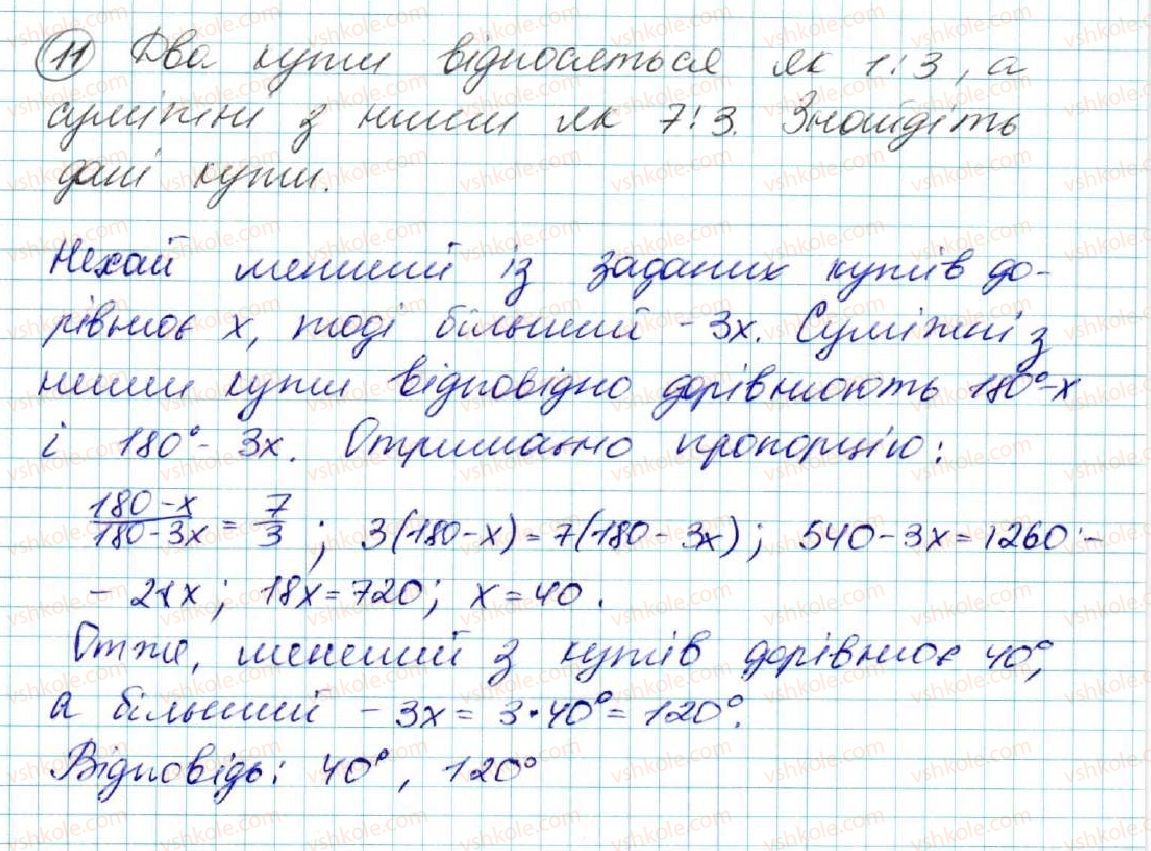 11 Два кути відносяться як 1:3, а
суміжні з ними як 7:3. Знайдіть
дані кути.
Нехай менший із заданих кутів до-
рівнює x, тоді більший - 3x. Суміжні з
ними кути відповідно дорівнюють 180°-x
і 180° - 3x. Отримаємо пропорцію:
180-x/180-3x = 7/3; 3(180-x) = 7(180-3x); 540-3x = 1260 -
- 21x; 18x = 720; x = 40.
Отже, менший з кутів дорівнює 40°,
а більший - 3x = 3·40° = 120°.
Відповідь: 40°, 120°